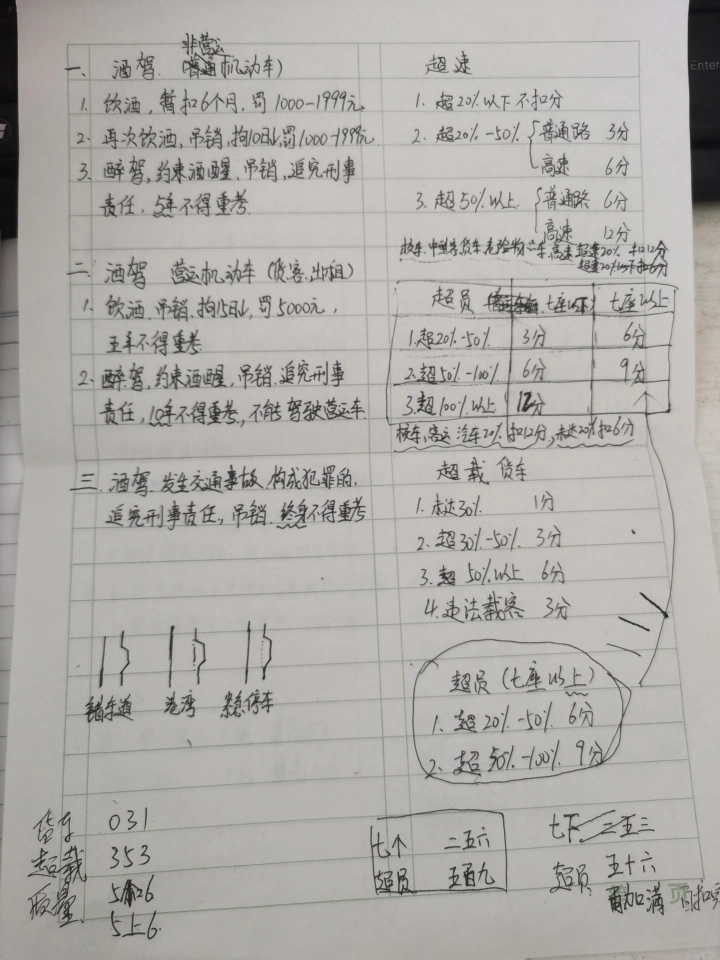 非营运
一、酒驾（普通机动车）
1. 饮酒，暂扣6个月，罚1000-1999元
2. 再次饮酒，吊销，拘10日↓，罚1000-1999元
3. 醉驾，约束酒醒，吊销，追究刑事
责任，5年不得重考
二、酒驾 营运机动车（货.客.出租）
1. 饮酒，吊销，拘15日↓，罚5000元，
五年不得重考
2. 醉驾，约束酒醒，吊销，追究刑事
责任，10年不得重考，不能驾驶营运车
三、酒驾发生交通事故，构成犯罪的，
追究刑事责任，吊销，终身不得重考
错车道 港湾 紧急停车
货车 031
超载 353
质量 5
5上6
超速
1. 超20%以下不扣分
2. 超20%-50% { 普通路 3分
高速 6分
3. 超50%以上 { 普通路 6分
高速 12分
校车.中型客货车.危险物 车.高速超速20%扣12分
超速20%以下扣6分
超员 七座以下 七座以上
1.超20%-50% 3分 6分
2.超50%-100% 6分 9分
3.超100%以上 12分
校车、客运汽车20%扣12分，未达20%扣6分
超载 货车
1. 未达30% 1分
2. 超30%-50% 3分
3. 超50%以上 6分
4. 违法载客 3分
超员（七座以上）
1. 超20%-50% 6分
2. 超50%-100% 9分
七个 二五六
超员 五百九
七下 二五三
超员 五十六
加满
页
Enter